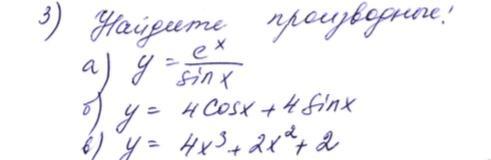 3) Найдите производные!
а) y = e^x / sin x
б) y = 4 cosx + 4 sinx
в) y = 4x³ + 2x² + 2